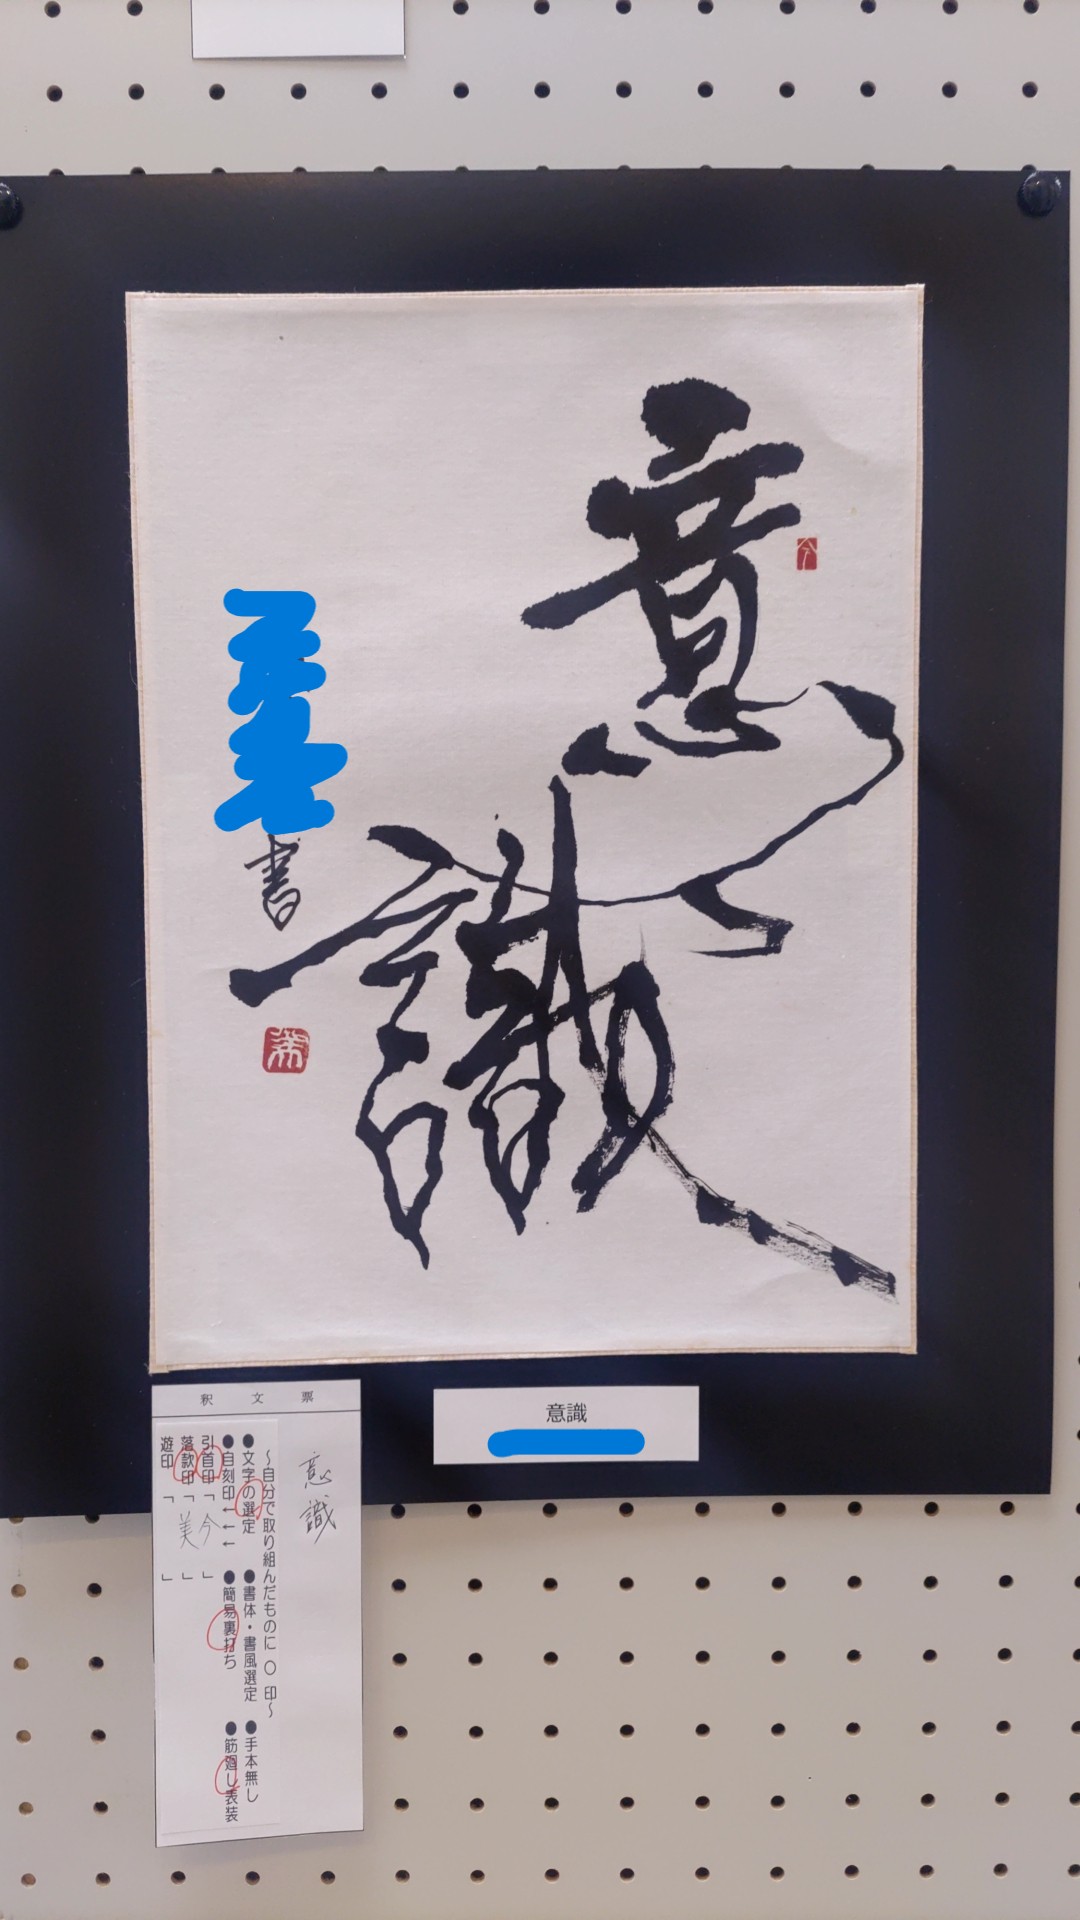 意識
書
今
美
釈文票
意識
～自分で取り組んだものに ○ 印～
●文字の選定 ●書体・書風選定 ●手本無し
●自刻印←←← ●簡易裏打ち ●筋廻し表装
引首印「今」
落款印「美」
遊印「 」
意識